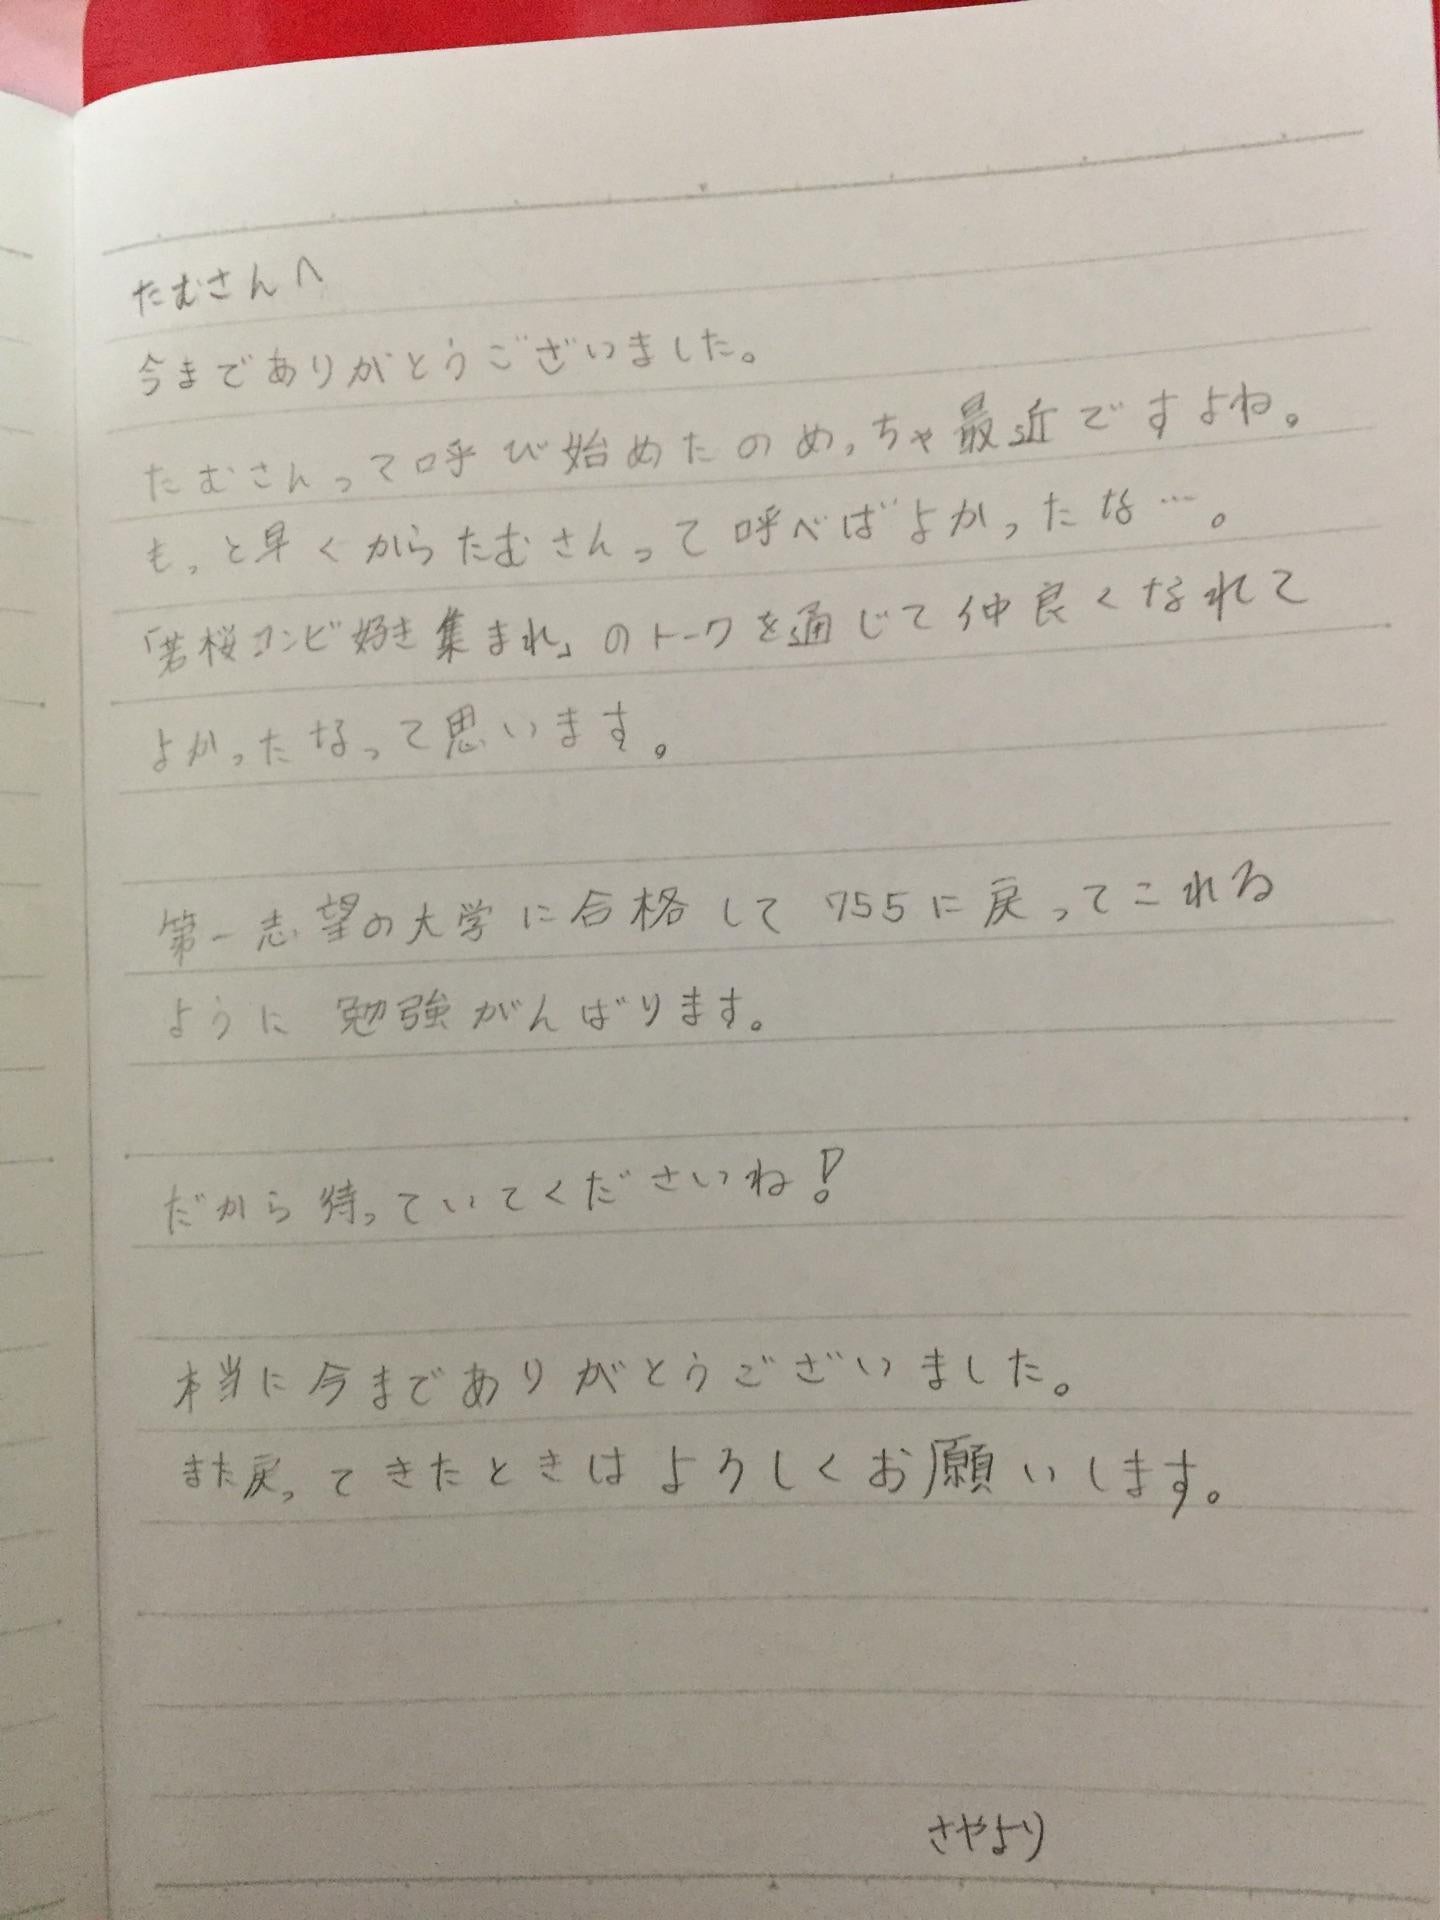 たむさんへ
今までありがとうございました。
たむさんって呼び始めたのめっちゃ最近ですよね。
もっと早くからたむさんって呼べばよかったな…。
「若桜コンビ好き集まれ」のトークを通じて仲良くなれて
よかったなって思います。
第一志望の大学に合格して755に戻ってこれる
ように勉強がんばります。
だから待っていてくださいね!
本当に今までありがとうございました。
また戻ってきたときはよろしくお願いします。
さやより